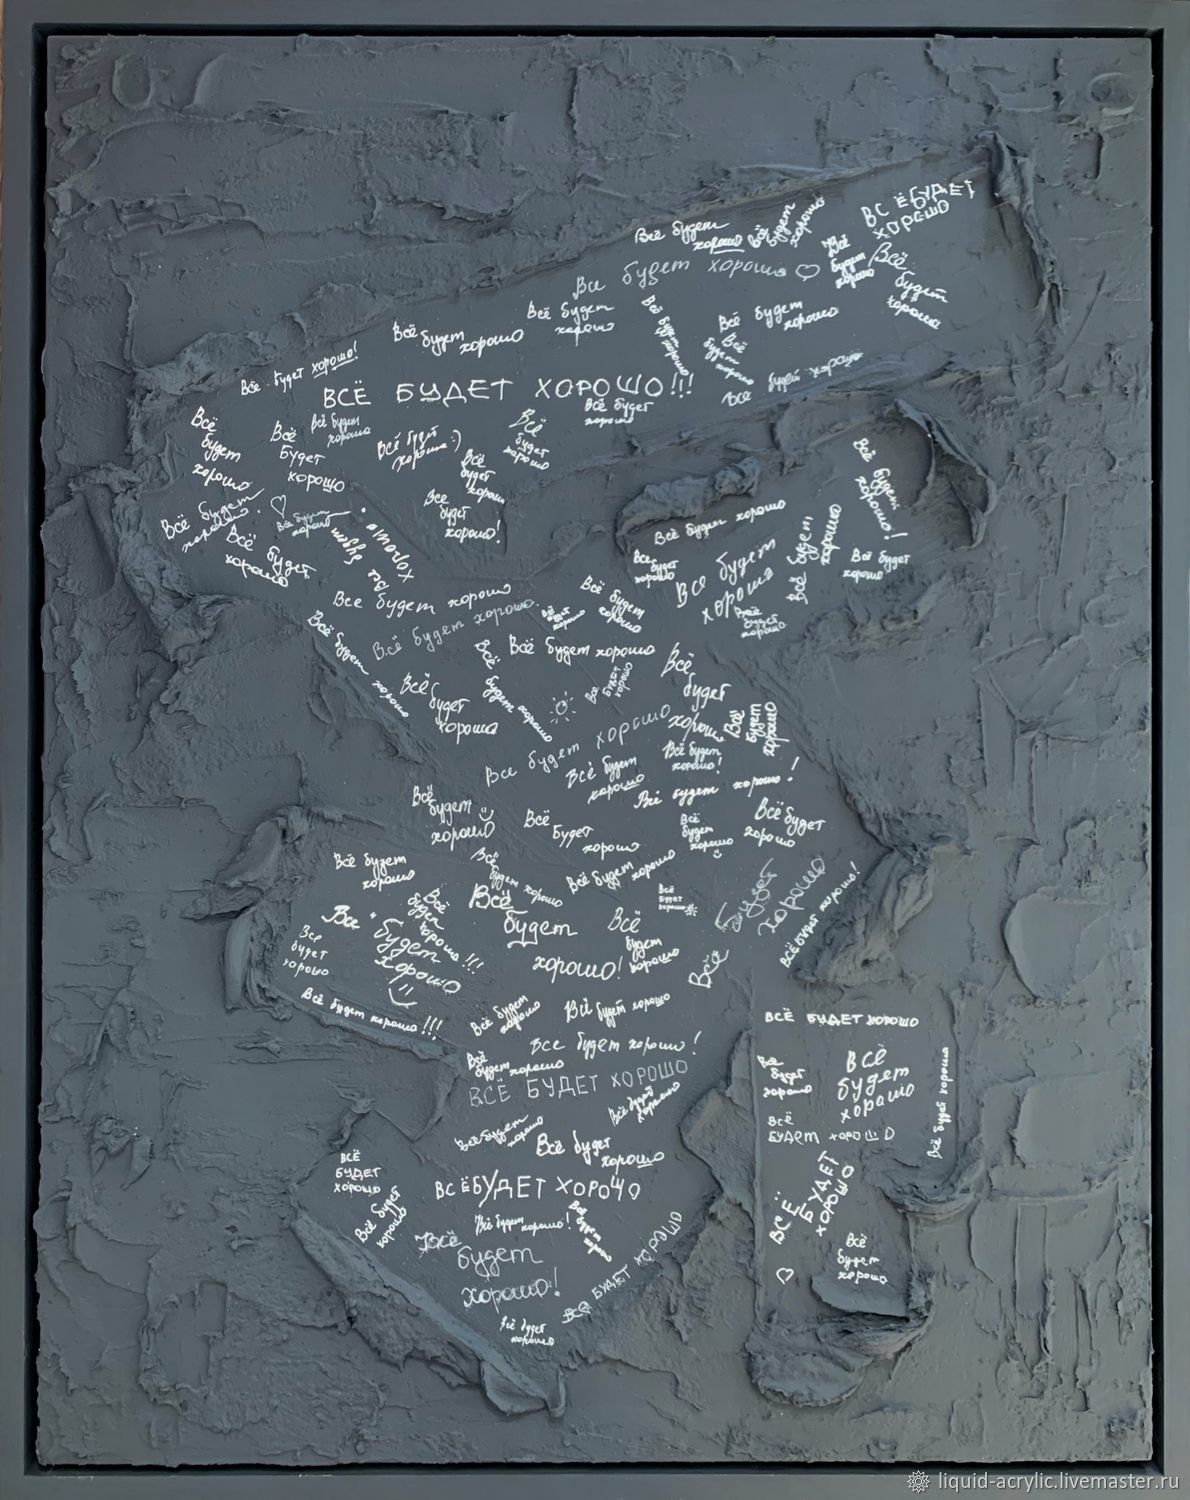 ВСЁ БУДЕТ
ХОРОШО
Всё будет
хорошо
Всё
будет
хорошо
Всё
будет
хорошо
Все будет хорошо
Всё
будет
хорошо
Всё будет
хорошо
Всё будет
хорошо
Всё будет
хорошо
Всё будет хорошо
Всё
будет
хорошо
Все будет хорошо!
Все будет хорошо
ВСЁ БУДЕТ ХОРОШО!!!
Всё будет
хорошо
Всё
будет
хорошо
Всё будет
хорошо
Всё
Будет
хорошо
Всё будет
хорошо :)
Всё
будет
хорошо
Всё
будет
хорошо
Все
будет
хорошо!
Всё будет
хорошо!
Все будет
хорошо.
Всё будет
хорошо
Всё
будет
хорошо
Все будет
хорошо.
Все будет хорошо
Всё
будет
хорошо
Все будет
хорошо
Всё будет
хорошо
Всё будет
хорошо
Все будет хорошо
Все будет хорошо.
Всё будет
хорошо
Всё
будет
хорошо
Всё будет
хорошо
Всё будет хорошо
Всё будет хорошо
Всё будет хорошо
Всё
будет
хорошо
Все
будет
хорошо
Всё
будет
хорошо
Всё
будет
хорошо
Все будет хорошо
Всё будет
хорошо!
Всё будет
хорошо
Всё будет хорошо!
Всё
будет
хорошо
Всё
Будет
хорошо
Всё
будет
хорошо
Всё будет
хорошо
Всё будет
хорошо
Всё
будет хорошо
Всё будет хорошо
Всё
будет
хорошо
Всё
Будет
хорошо
Всё будет хорошо!
Все
будет
хорошо
Всё
будет
хорошо!!!
Всё
будет
хорошо!
Всё
будет
хорошо
Все
будет
хорошо
Всё будет хорошо!!!
Всё будет
хорошо
Всё будет хорошо
Все будет хорошо!
Всё
будет хорошо
ВСЁ БУДЕТ ХОРОШО
ВСЁ БУДЕТ ХОРОШО
Всё будет
хорошо
Всё
будет
хорошо
Всё
будет
хорошо
Всё будет хорошо
Всё
БУДЕТ ХОРОШО
Всё будет
хорошо
Всё будет
хорошо
ВСЁ
БУДЕТ
ХОРОШО
ВСЁ БУДЕТ ХОРОШО
ВСЁ
БУДЕТ
ХОРОШО
Всё будет
хорошо
Всё будет хорошо!
Всё
будет
хорошо
Всё
будет
хорошо!
Всё
будет
хорошо
ВСЁ БУДЕТ ХОРОШО
Всё будет
хорошо
liquid-acrylic.livemaster.ru